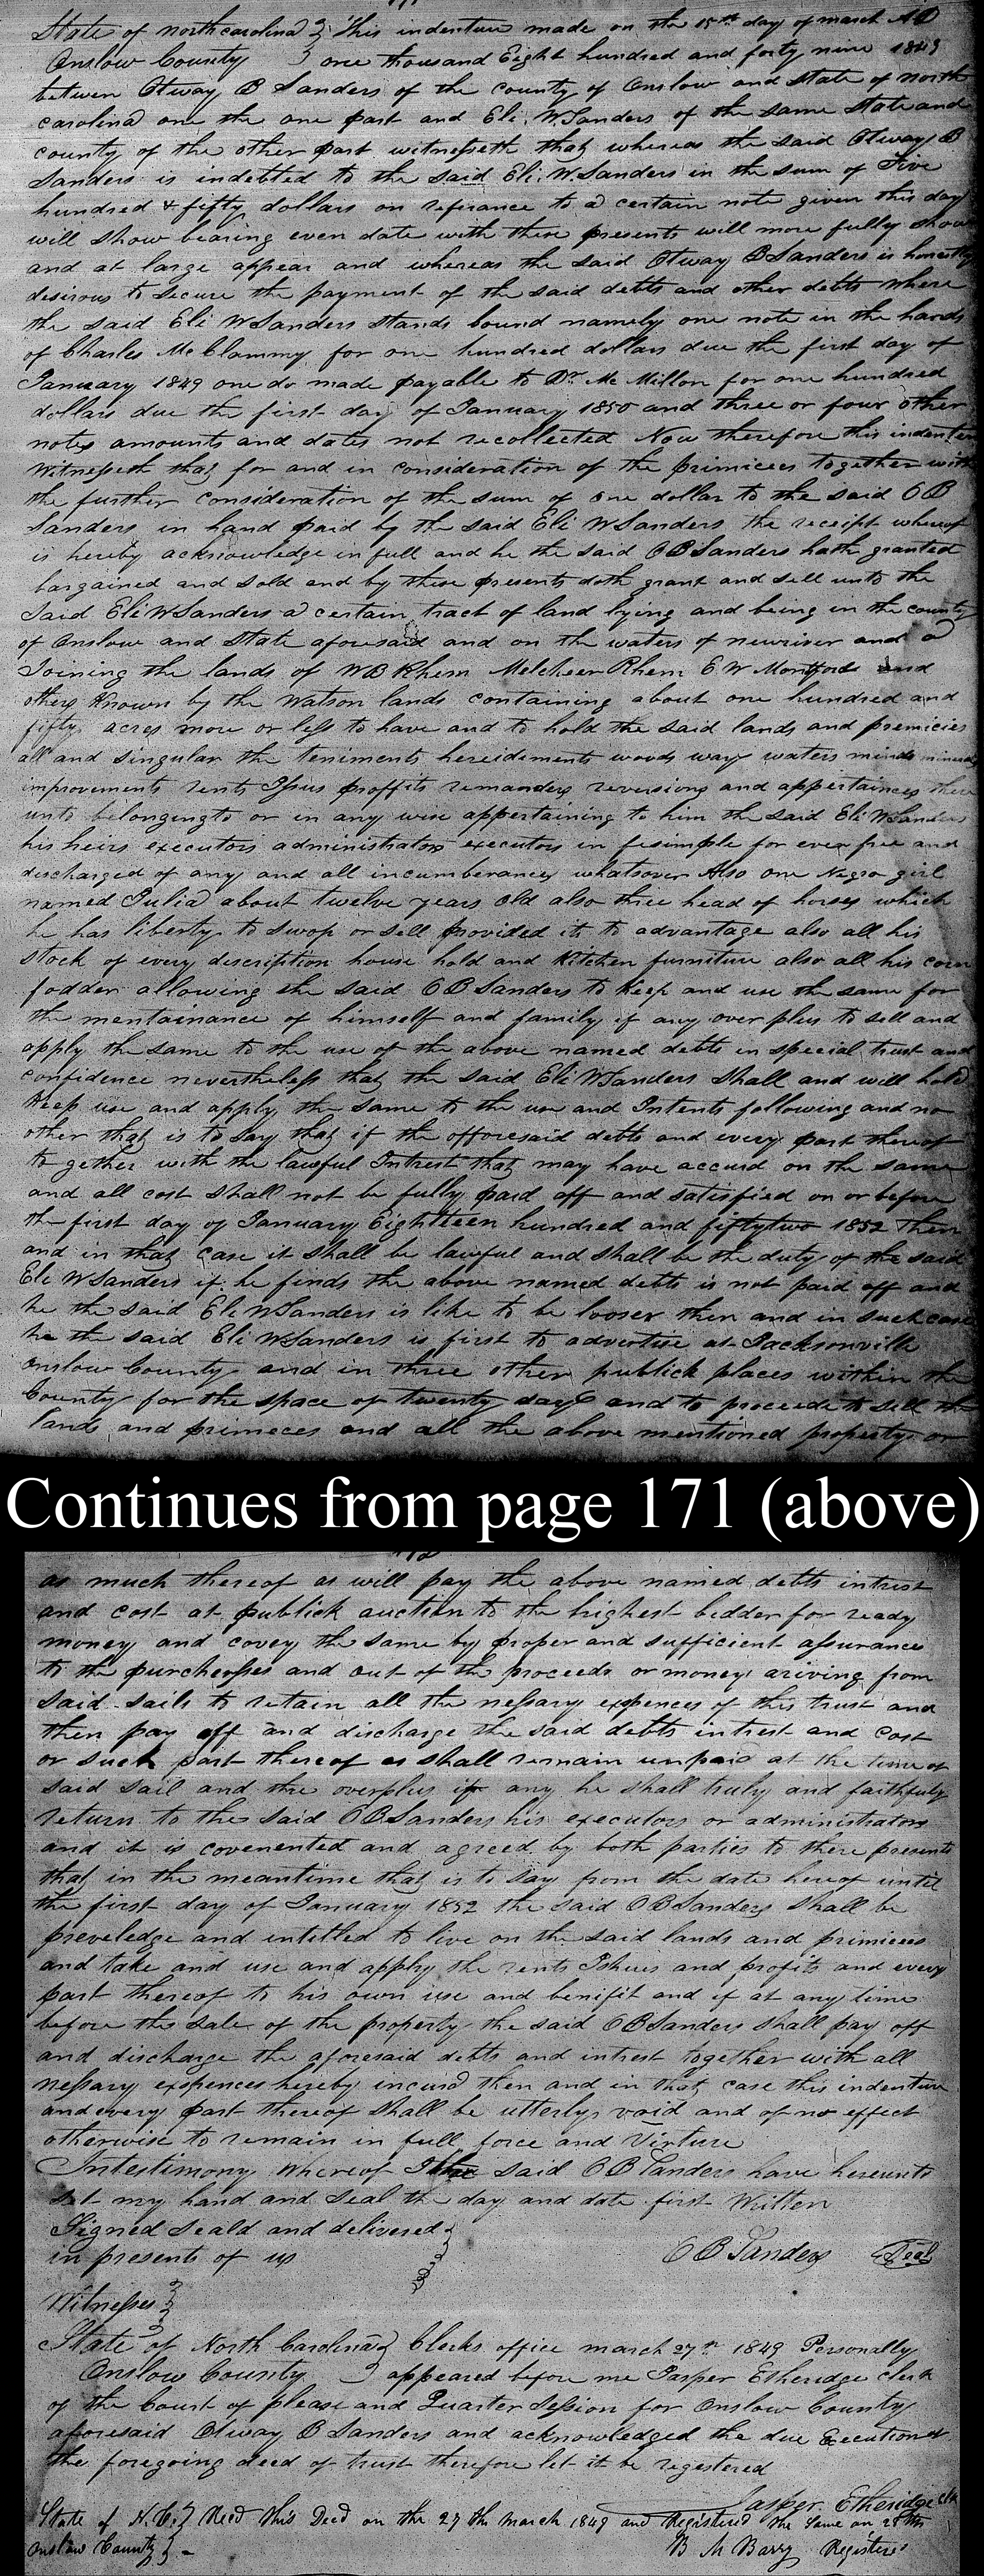 State of northcarolina } This indenture made on the 15th day of march AD
Onslow County } one thousand Eight hundred and forty nine 1849
betwen Otway B Sanders of the county of Onslow and State of north
carolina one the one part and Eli. W. Sanders of the same State and
county of the other part witnesseth that whereas the said Otway B
Sanders is indebted to the said Eli. W. Sanders in the sum of Five
hundred & fifty dollars on referance to a certain note given this day
will show bearing even date with these presents will more fully show
and at large appear and whereas the said Otway B Sanders is honestly
desirous to secure the payment of the said debts and other debts where
the said Eli W Sanders stands bound namely one note in the hands
of Charles McClammy for one hundred dollars due the first day of
January 1849 one do made payable to Dr. McMillon for one hundred
dollars due the first day of January 1850 and three or four other
notes amounts and dates not recollected Now therefore this indenter
Witnesseth that for and in consideration of the primicees together with
the further consideration of the sum of one dollar to the said O B
Sanders in hand paid by the said Eli W Sanders the receipt whereof
is hereby acknowledge in full and he the said O B Sanders hath granted
bargained and sold and by these presents doth grant and sell unto the
Said Eli W Sanders a certain tract of land lying and being in the county
of Onslow and State aforesaid and on the waters of newriver and a
Joining the lands of W B Rhem Melcheer Rhem E W Montford and
others Known by the Watson lands containing about one hundred and
fifty acres more or less to have and to hold the said lands and premicies
all and singular the teniments hereidiments woods ways waters minds minerals
improvements rents Issus proffits remanders reversions and appertainces there
unto belongingto or in any wise appertaining to him the said Eli W Sanders
his heirs executors administrators executors in fesimple for ever free and
discharged of any and all incumberances whatsover Also one Negro girl
named Julia about twelve years old also three head of horses which
he has liberty to swop or sell provided its to advantage also all his
stock of every description house hold and Kitchen furniture also all his corn
fodder allowing the said O B Sanders to Keep and use the same for
the mentainance of himself and family if any over plus to sell and
apply the same to the use of the above named debts in special trust and
confidence nevertheless that the said Eli W Sanders shall and will hold
Keep use and apply the same to the use and Intents following and no
other that is to say that if the afforesaid debts and every part thereof
to gether with the lawful Intrest that may have accurd on the same
and all cost shall not be fully paid off and satisfied on or before
the first day of January Eighteen hundred and fiftytwo 1852 Then
and in that case it shall be lawful and shall be the duty of the said
Eli W Sanders if he finds the above named debts is not paid off and
he the said Eli W Sanders is like to be looser then and in such case
he the said Eli W Sanders is first to advertise at Jacksonville
Onslow County and in three other publick places within the
County for the space of twenty days and to proceede to sell the
lands and primeces and all the above mentioned property or
Continues from page 171 (above)
as much thereof as will pay the above named debts intrest
and cost at publick auction to the highest bidder for ready
money and covey the same by proper and sufficient assurance
to the purchesses and out of the proceeds or money ariving from
said sails to retain all the nessary expences of this trust and
then pay off and discharge the said debts intrest and cost
or such part thereof as shall remain unpaid at the time of
said sail and the overplus if any he shall truly and faithfuly
return to the said O B Sanders his executors or administrators
and it is covenented and agreed by both parties to there presents
that in the meantime that is to say from the date hereof until
the first day of January 1852 the said O B Sanders shall be
preveledge and intitled to live on the said lands and primices
and take and use and apply the rents Ishues and profits and every
part thereof to his own use and benifit and if at any time
before the sale of the property the said O B Sanders shall pay off
and discharge the aforesaid debts and intrest together with all
nessary expences hereby incurd then and in that case this indenture
and every part thereof shall be utterly void and of no effect
otherwise to remain in full force and Virture
Intestimony whereof I the said O B Sanders have hereunto
set my hand and seal the day and date first Written
Signed Seald and delivered }
in presents of us } O B Sanders Seal
Witnesses }
State of North Carolina } Clerks office march 27th 1849 Personally
Onslow County } appeared before me Jasper Etheridge clerk
of the Court of please and Quarter Session for Onslow County
aforesaid Otway B Sanders and acknowledged the due Execution of
the foregoing deed of trust therefore let it be registered
Jasper Etheridge clk
State of N.C. } Recd this Deed on the 27th March 1849 and Registered the same on 28th
Onslow County } B M Barry Register